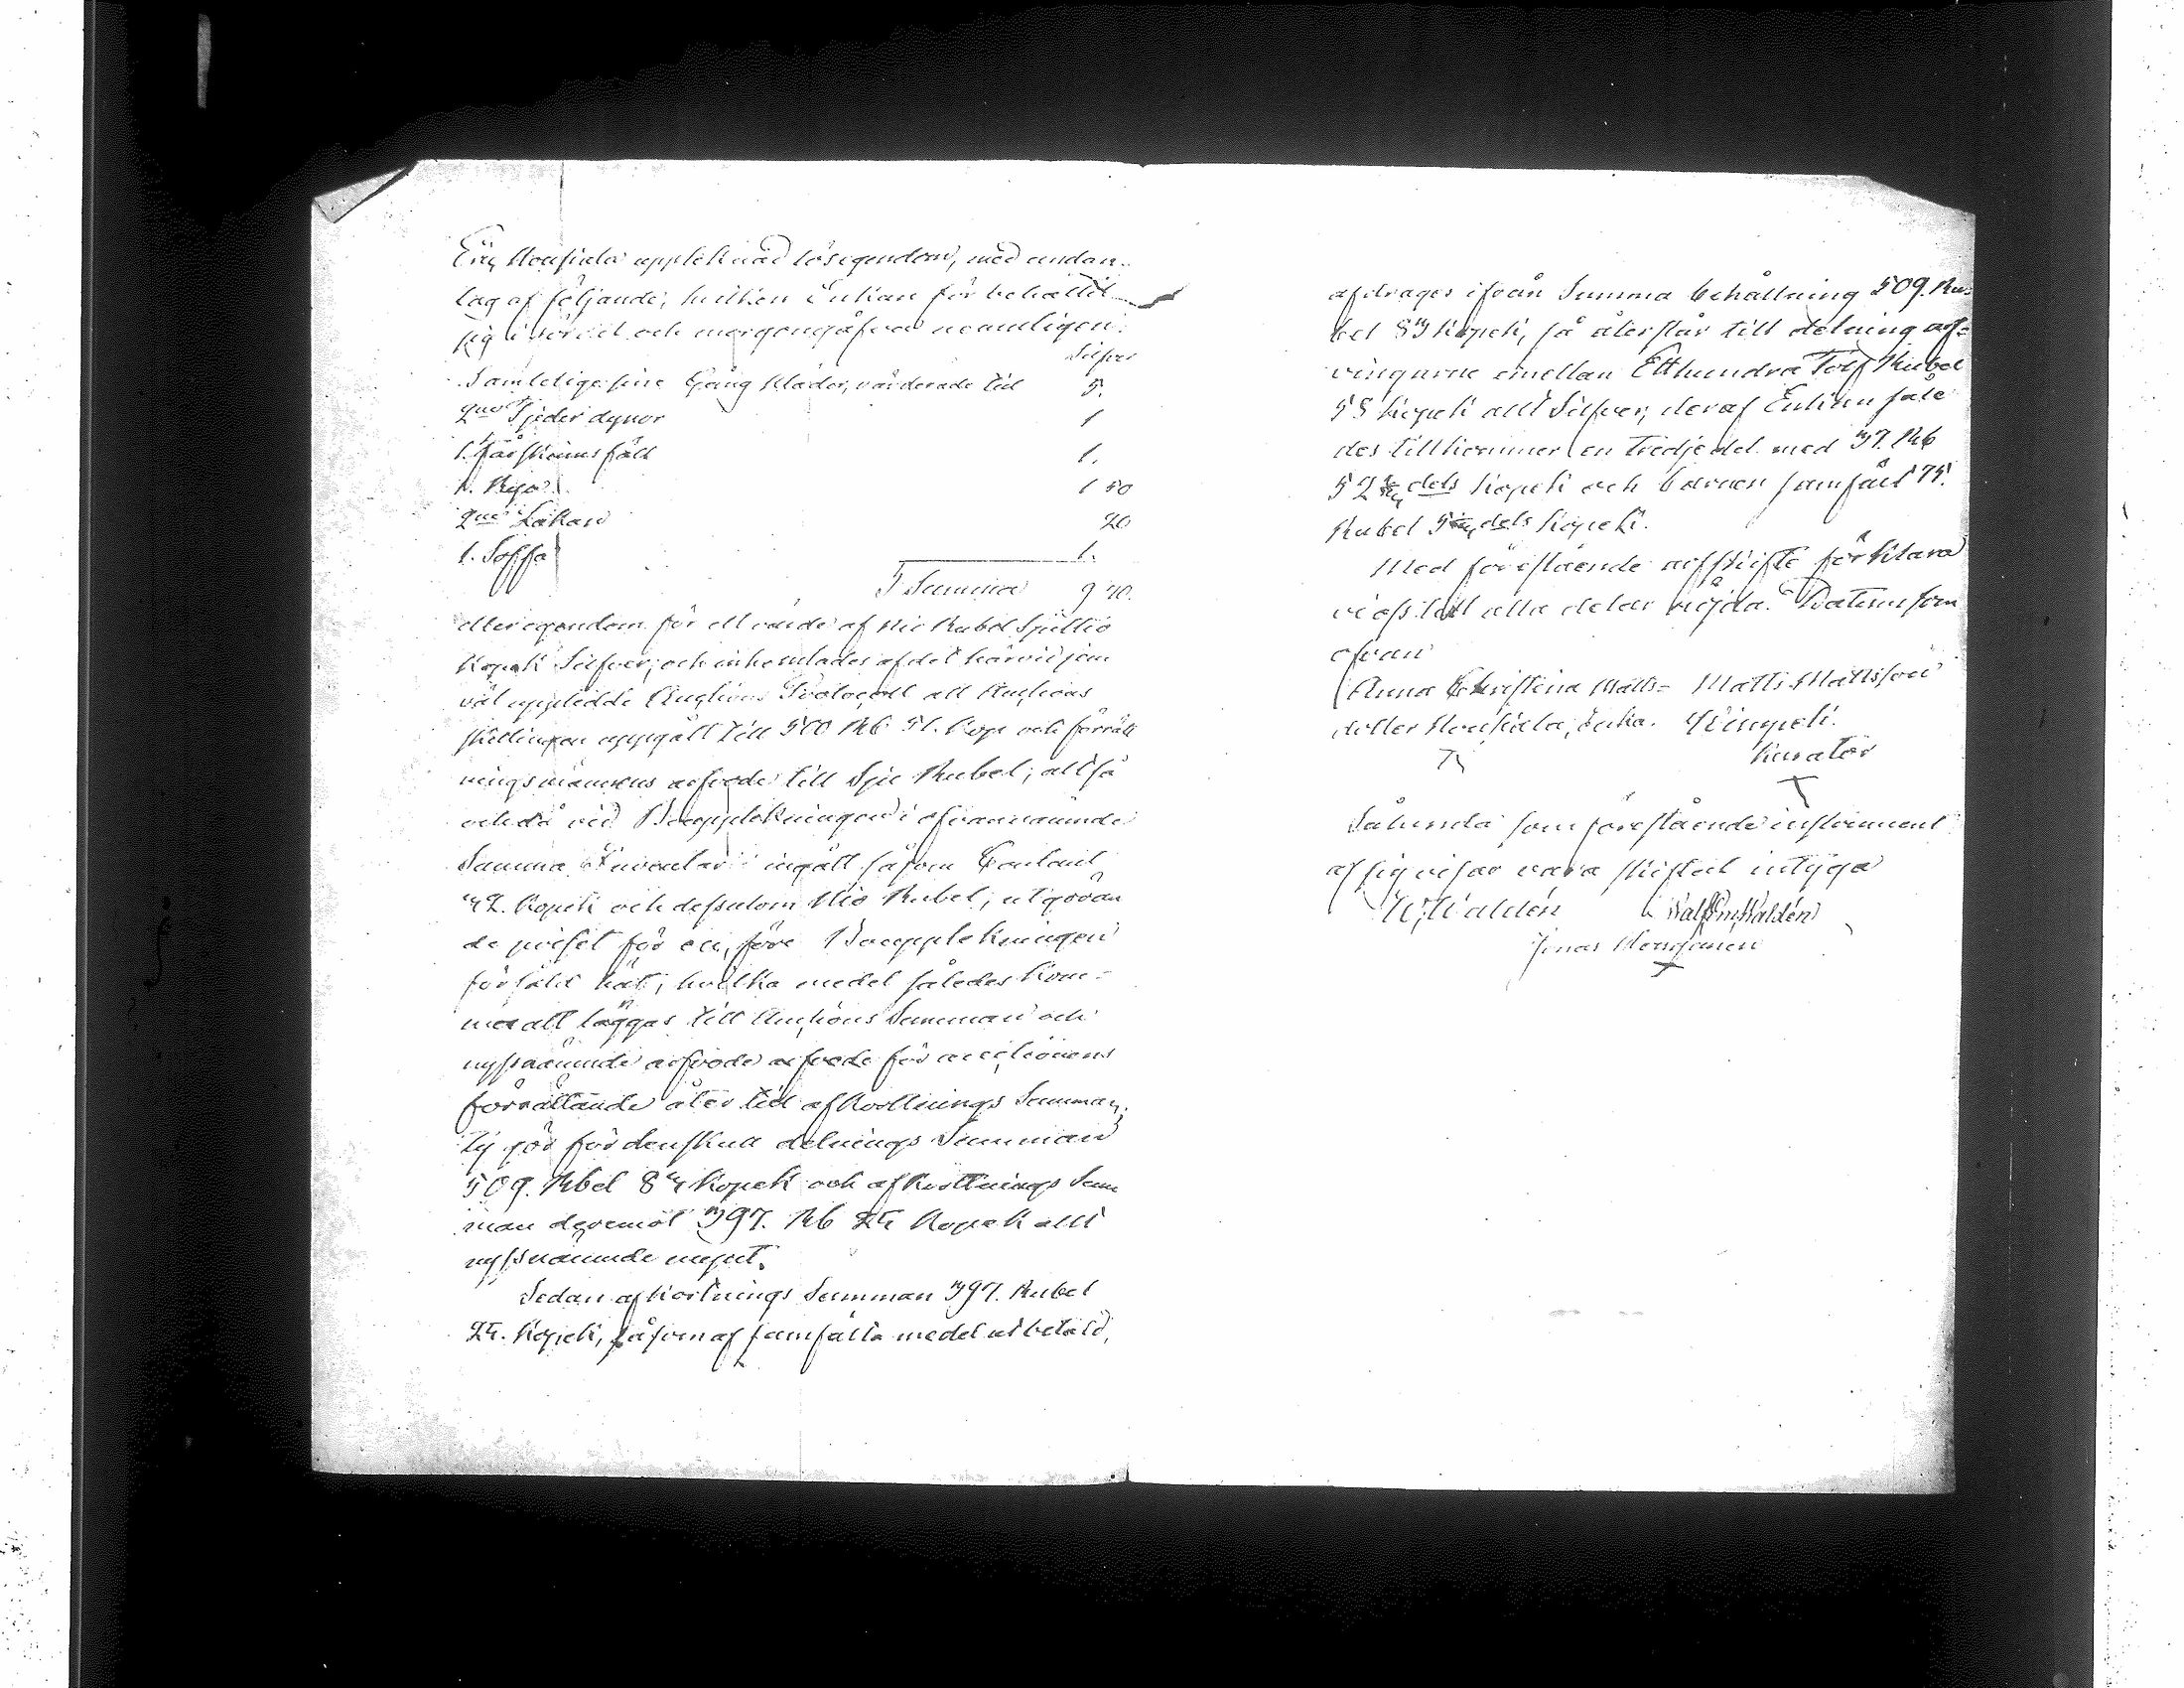 Eriq Monsiala upptecknad lösegendom, med undan-
tag af följande; hvilken Enkan förbehållit
sig i vördn och morgongåfva neamligen:
Silfver
Samtelige sine Gång kläder, värderade till 5.
2ne Fjeder dynor 1
1. Fårskinns fäll 1.
1. Ryja 1 50
2ne Lakan 20
1. Soffa 1.
I Summa 9 70.
eller egendom för ett värde af nio Rubel Sjuttio
kopek Silfver; och inhemtades af det härvid jem
väl uppledde Auctions Protocoll att Auctions
skillingen uppgått till 500 Rb 51. kop och förrätt
ningsmännens arfvode till Sju Rubel; alltså
och då vid Bouppteckningen i ofvannämnde
Summa Inventar ingått såsom Contant
42. kopek och dessutom Nio Rubel, utgöran
de priset för en, före Bouppteckningen
försåld häst; hvilka medel således kom-
mer att läggas till Auctions Summan och
nyssnämnde arfvode arfvode för auctionens
förrättande åter till afkortnings Summan;
Ty gör för denskull delnings Summan
509. Rbel 83 kopek och afkortnings Sum
man deremot 397. Rb 25 kopek allt
nyssnämnde mynt.
Sedan afkortnings Summan 397. Rubel
25. kopek, såsom af samfälta medel utbetald,
afdrages ifrån Summa behållning 509. Ru-
bel 83 kopek, så återstår till delning arf-
vingarne emellan Etthundra Tolf Rubel
58 kopek allt Silfver; deraf Enkan såle
des tillkommer en tredjedel med 37. Rb
52 dels kopek och barnen samfält 75.
Rubel 5 dels kopek.
Med förestående arfskifte förklara
vi oss till alla delar nöjda. Datum som
ofvan
Anna Christina Matts- Matts Mattsson
dotter Monsiala, Enka. Kimpeli.
Kurator
Sålunda som förestående instrument
af sig visar vara skiftad intyga
W; Waldén Walfr; Em; Waldén
Jonas